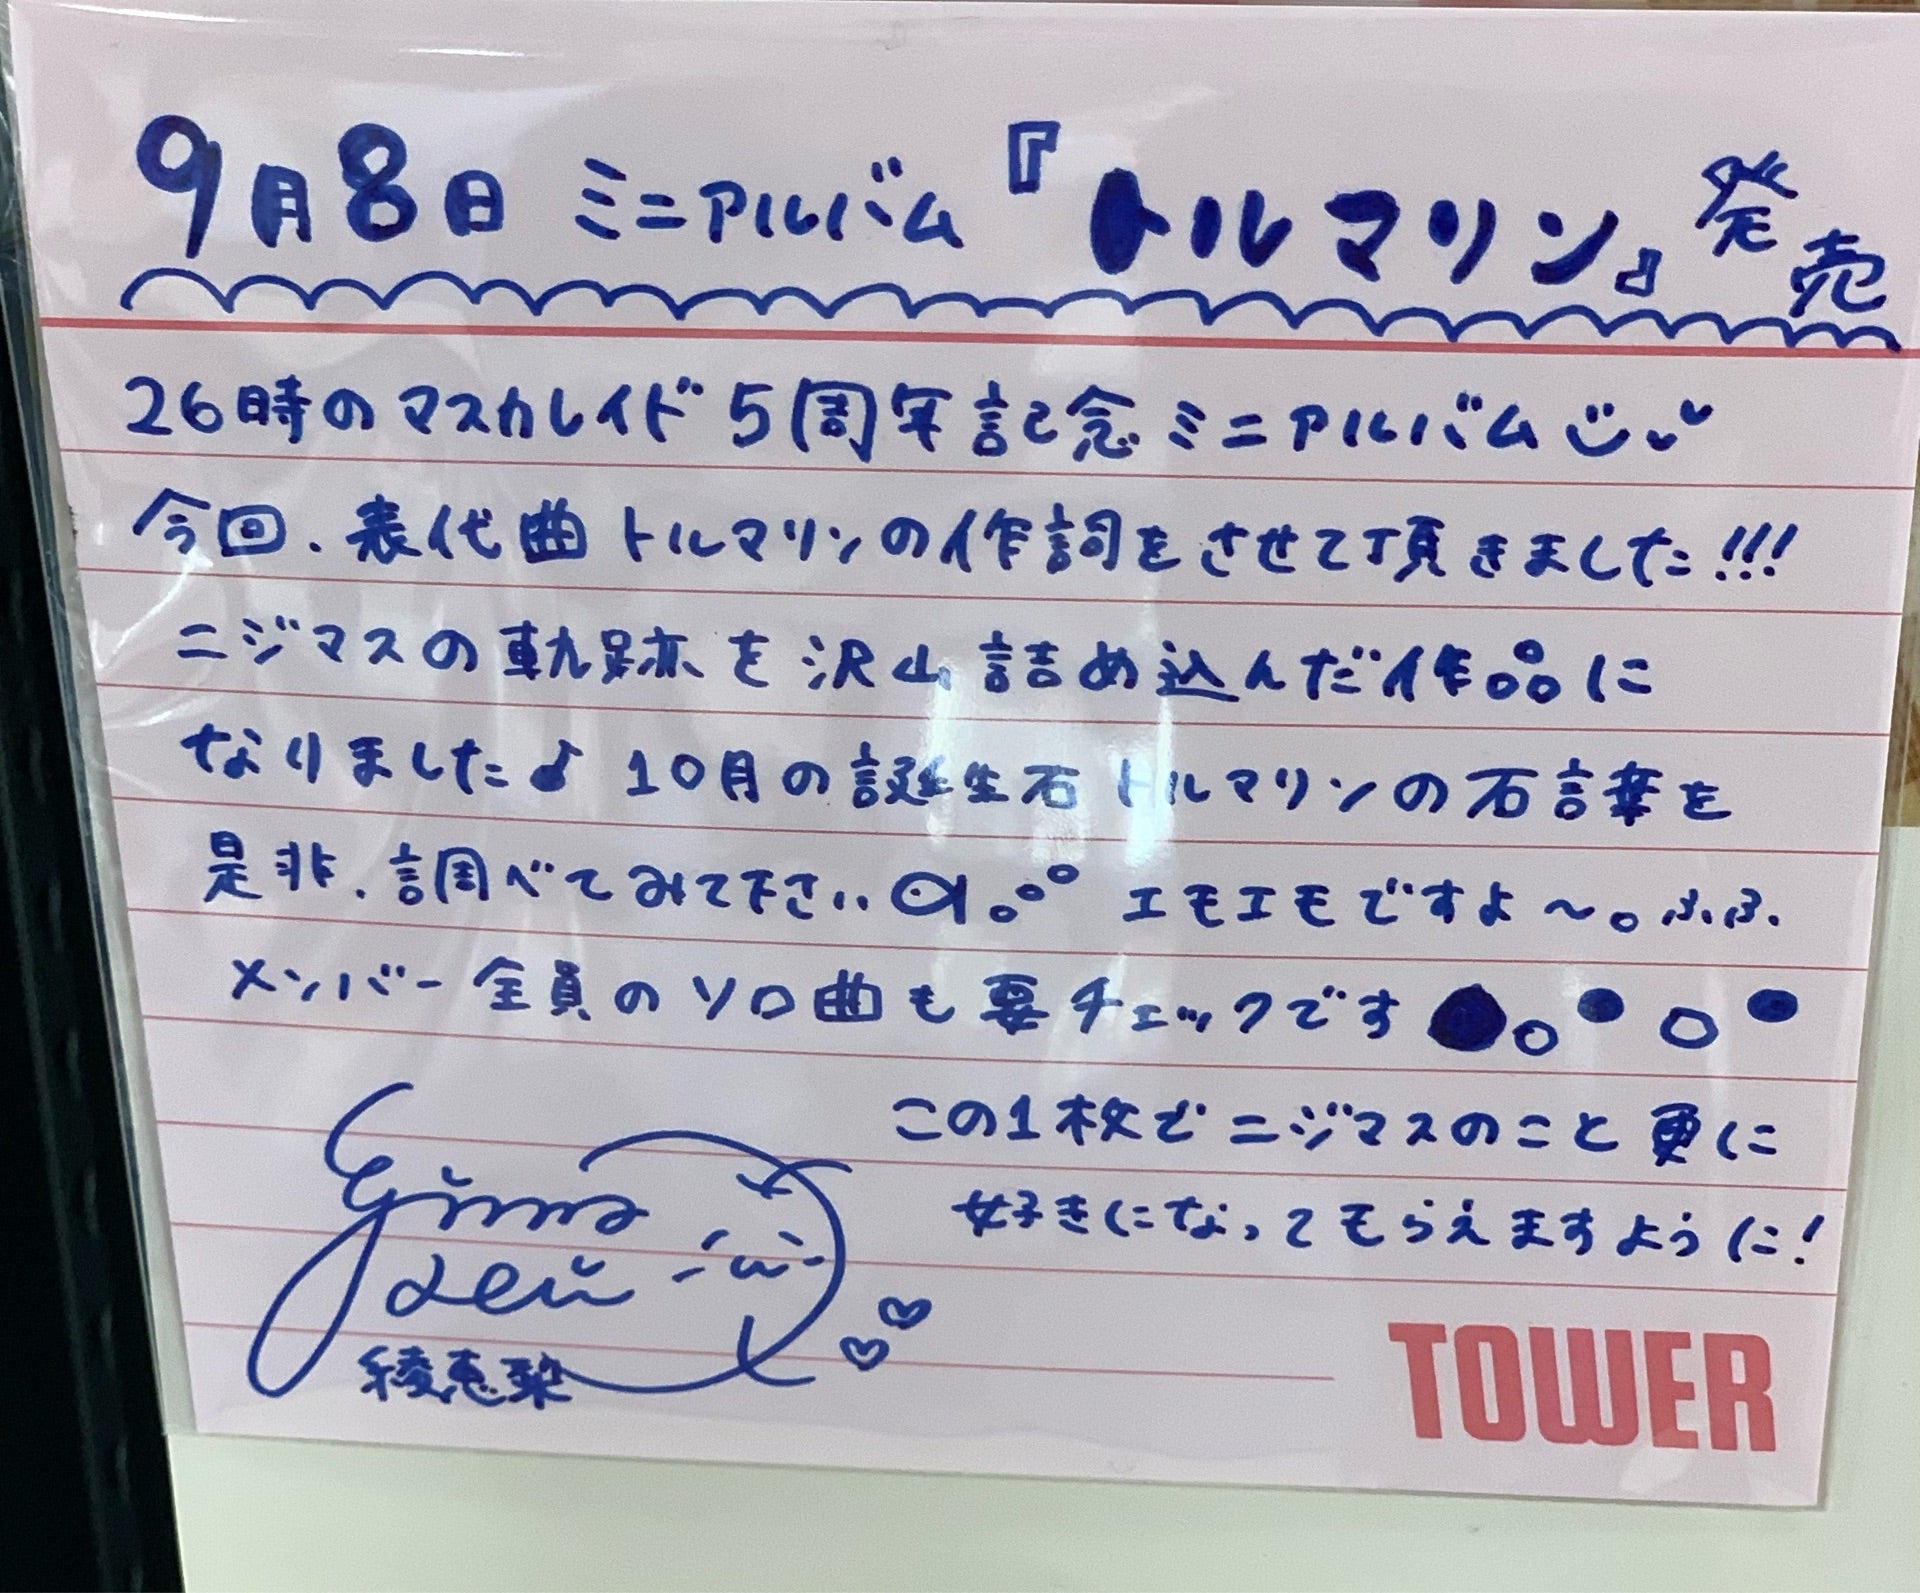 9月8日 ミニアルバム『トルマリン』発売
26時のマスカレイド5周年記念ミニアルバム
今回、表代曲トルマリンの作詞をさせて頂きました!!!
ニジマスの軌跡を沢山詰め込んだ作品に
なりました♪ 10月の誕生石トルマリンの石言葉を
是非、調べてみて下さい。エモエモですよ〜。ふふ。
メンバー全員のソロ曲も要チェックです
この1枚でニジマスのこと更に
好きになってもらえますように!
綾恵梨
TOWER